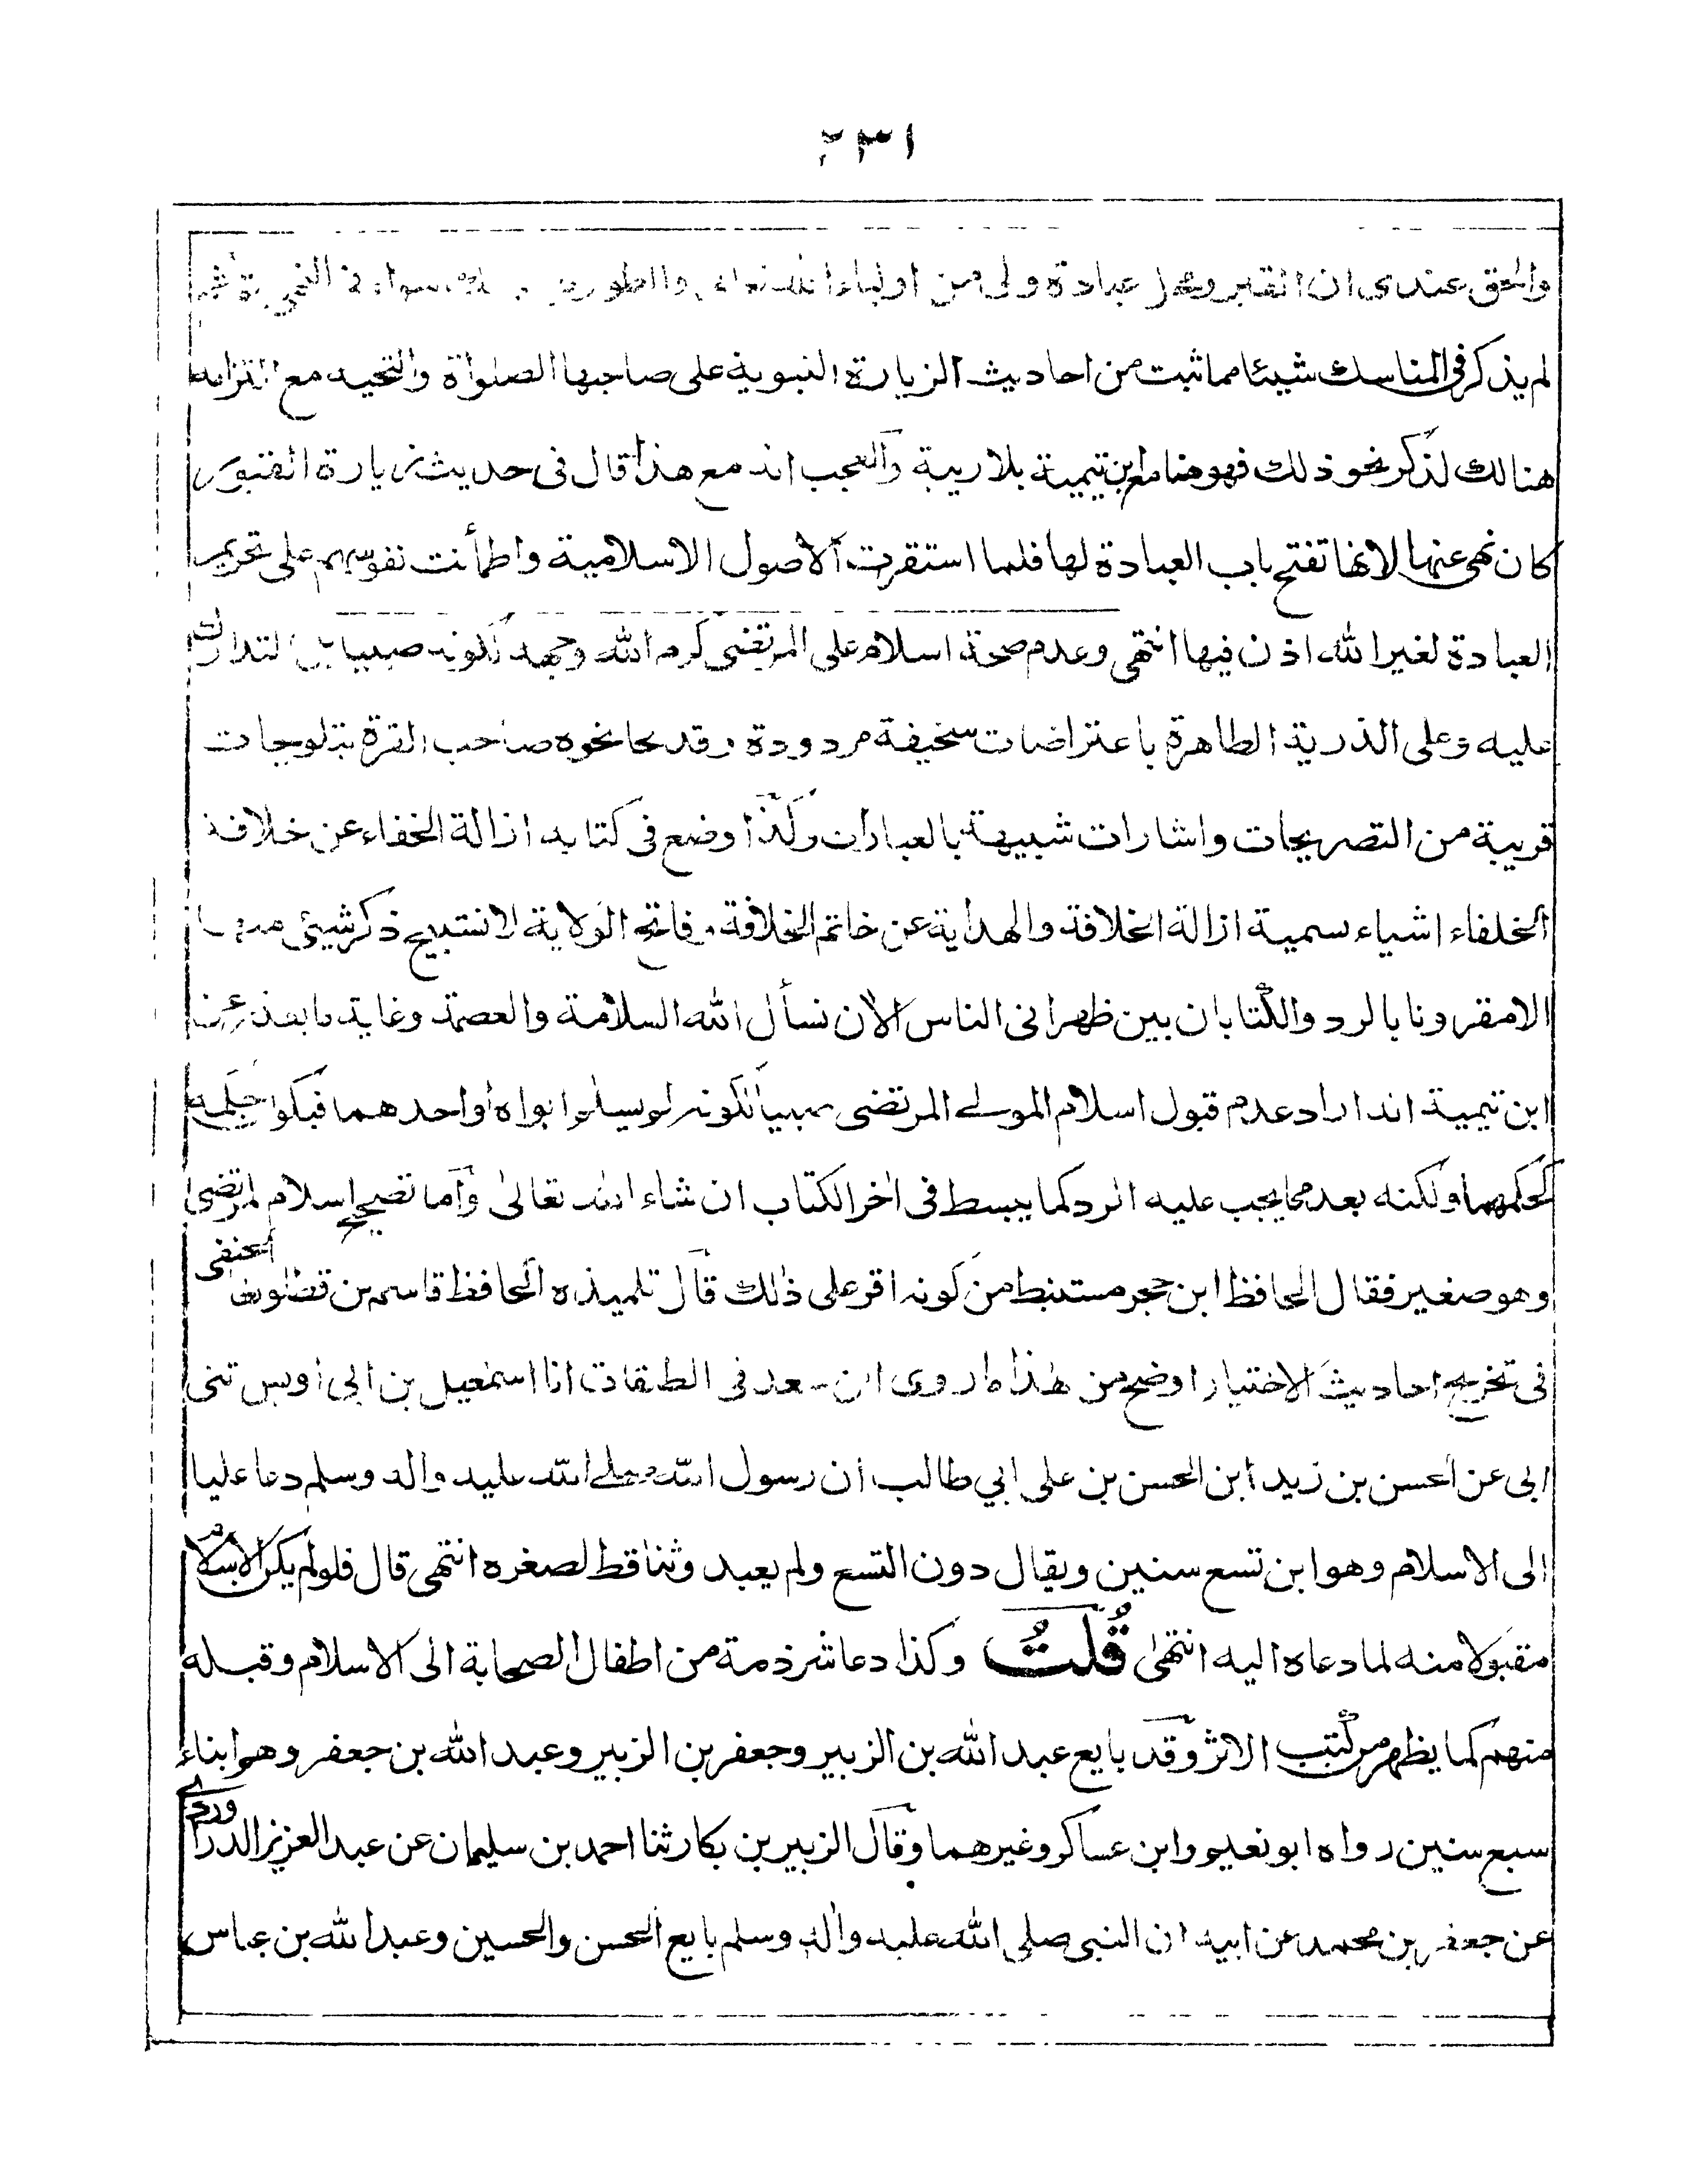 ٢٣١
والحق عندى ان القبر ومحل عبادة ولى من اولياء الله تعالى والطور كل ذلك سواء فى النهى ثم
لم يذكر فى المناسك شيئا مما ثبت من احاديث الزيارة النبوية على صاحبها الصلواة والتحيه مع التزامه
هنالك لذكر نحو ذلك فهو هنا مع ابن تيمية بلا ريبة والعجب انه مع هذا قال فى حديث زيارة القبور
كان نهى عنها لانها تفتح باب العبادة لها فلما استقرت الاصول الاسلامية واطمأنت نفوسهم على تحريم
العبادة لغير الله اذن فيها انتهى وعدم صحة اسلام على المرتضى كرم الله وجهه لكونه صبيا بل التدارك
عليه وعلى الذرية الطاهرة باعتراضات سخيفة مردودة وقد نحا نحوه صاحب القرة بتلويحات
قريبة من التصريحات واشارات شبيهة بالعبارات وكذا وضع فى كتابه ازالة الخفاء عن خلافة
الخلفاء اشياء سمية ازالة الخلافة والهداية عن خاتم الخلافة وفاتح الولاية لا نستبيح ذكر شيئى منها
الا مقرونا بالرد والكتابان بين ظهرانى الناس الان نسأل الله السلامة والعصمة وغاية ما يعتذر عن
ابن تيمية انه اراد عدم قبول اسلام المولى المرتضى صبيا لكونه لم يسلم ابواه أو احدهما فيكون حكمه
كحكمهما ولكنه بعد مما يجب عليه الرد كما يبسط فى اخر الكتاب ان شاء الله تعالىٰ وأما تصحيح اسلام المرتضى
وهو صغير فقال الحافظ ابن حجر مستنبط من كونه اقر على ذٰلك قال تلميذه الحافظ قاسم بن قطلوبغا الحنفى
فى تخريج احاديث الاختيار اوضح من هٰذا ما روى ابن سعد فى الطبقات انا اسمٰعيل بن ابى أويس ثنى
ابى عن الحسن بن زيد ابن الحسن بن على ابي طالب أن رسول الله صلے الله عليه واله وسلم دعا عليا
الى الاسلام وهو ابن تسع سنين ويقال دون التسع ولم يعبد وثنا قط لصغره انتهى قال فلو لم يكن الاسلام
مقبولا منه لما دعاه اليه انتهىٰ قُلتُ وكذا دعا شرذمة من اطفال الصحابة الى الاسلام وقبله
منهم كما يظهر من كتب الاثر وقد بايع عبد الله بن الزبير وجعفر بن الزبير وعبد الله بن جعفر وهم ابناء
سبع سنين رواه ابو نعيم وابن عساكر وغيرهما وقال الزبير بن بكار ثنا احمد بن سليمان عن عبد العزيز الدراوردے
عن جعفر بن محمد عن ابيه ان النبى صلى الله عليه واله وسلم بايع الحسن والحسين وعبد الله بن عباس